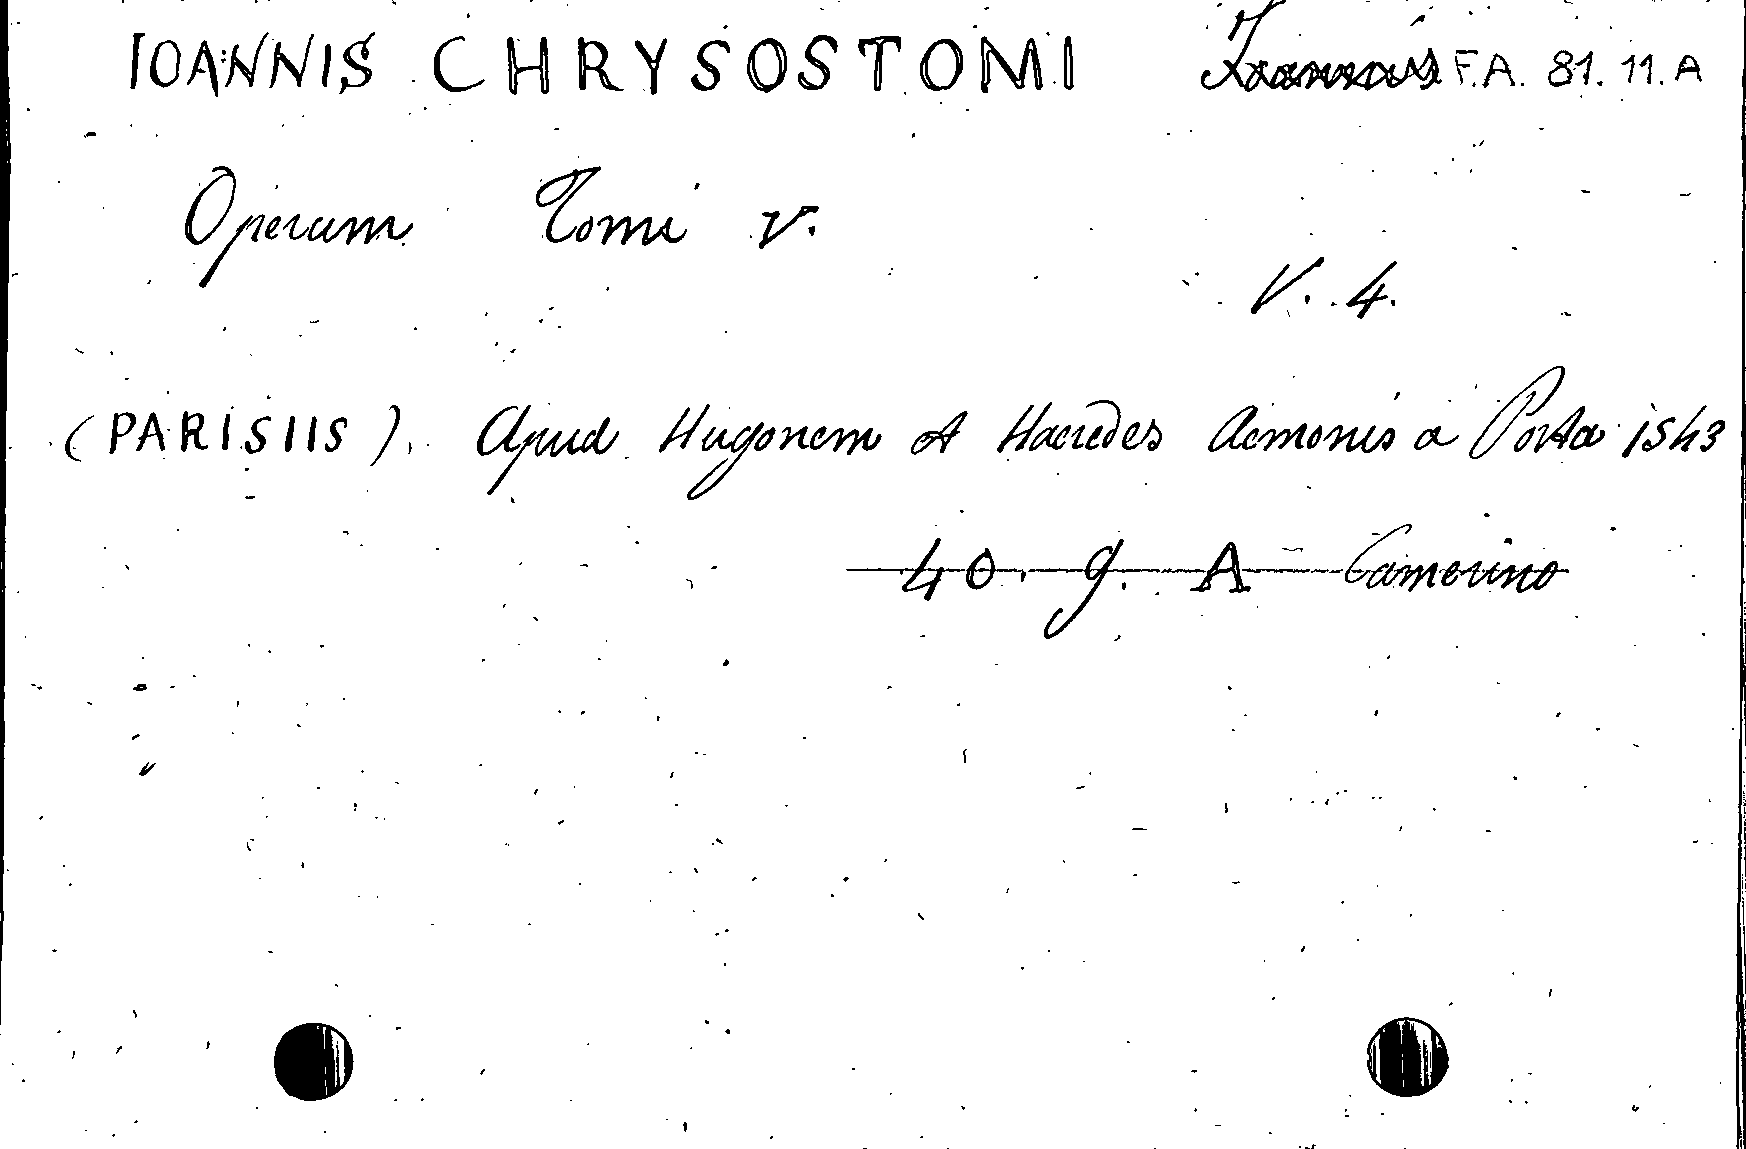 IOANNIS CHRYSOSTOMI F.A. 81. 11. A
Operum Tomi V.
V. 4.
(PARISIIS). Apud Hugonem et Haeredes Aemonis a Porta 1543
40. g. A Camerino